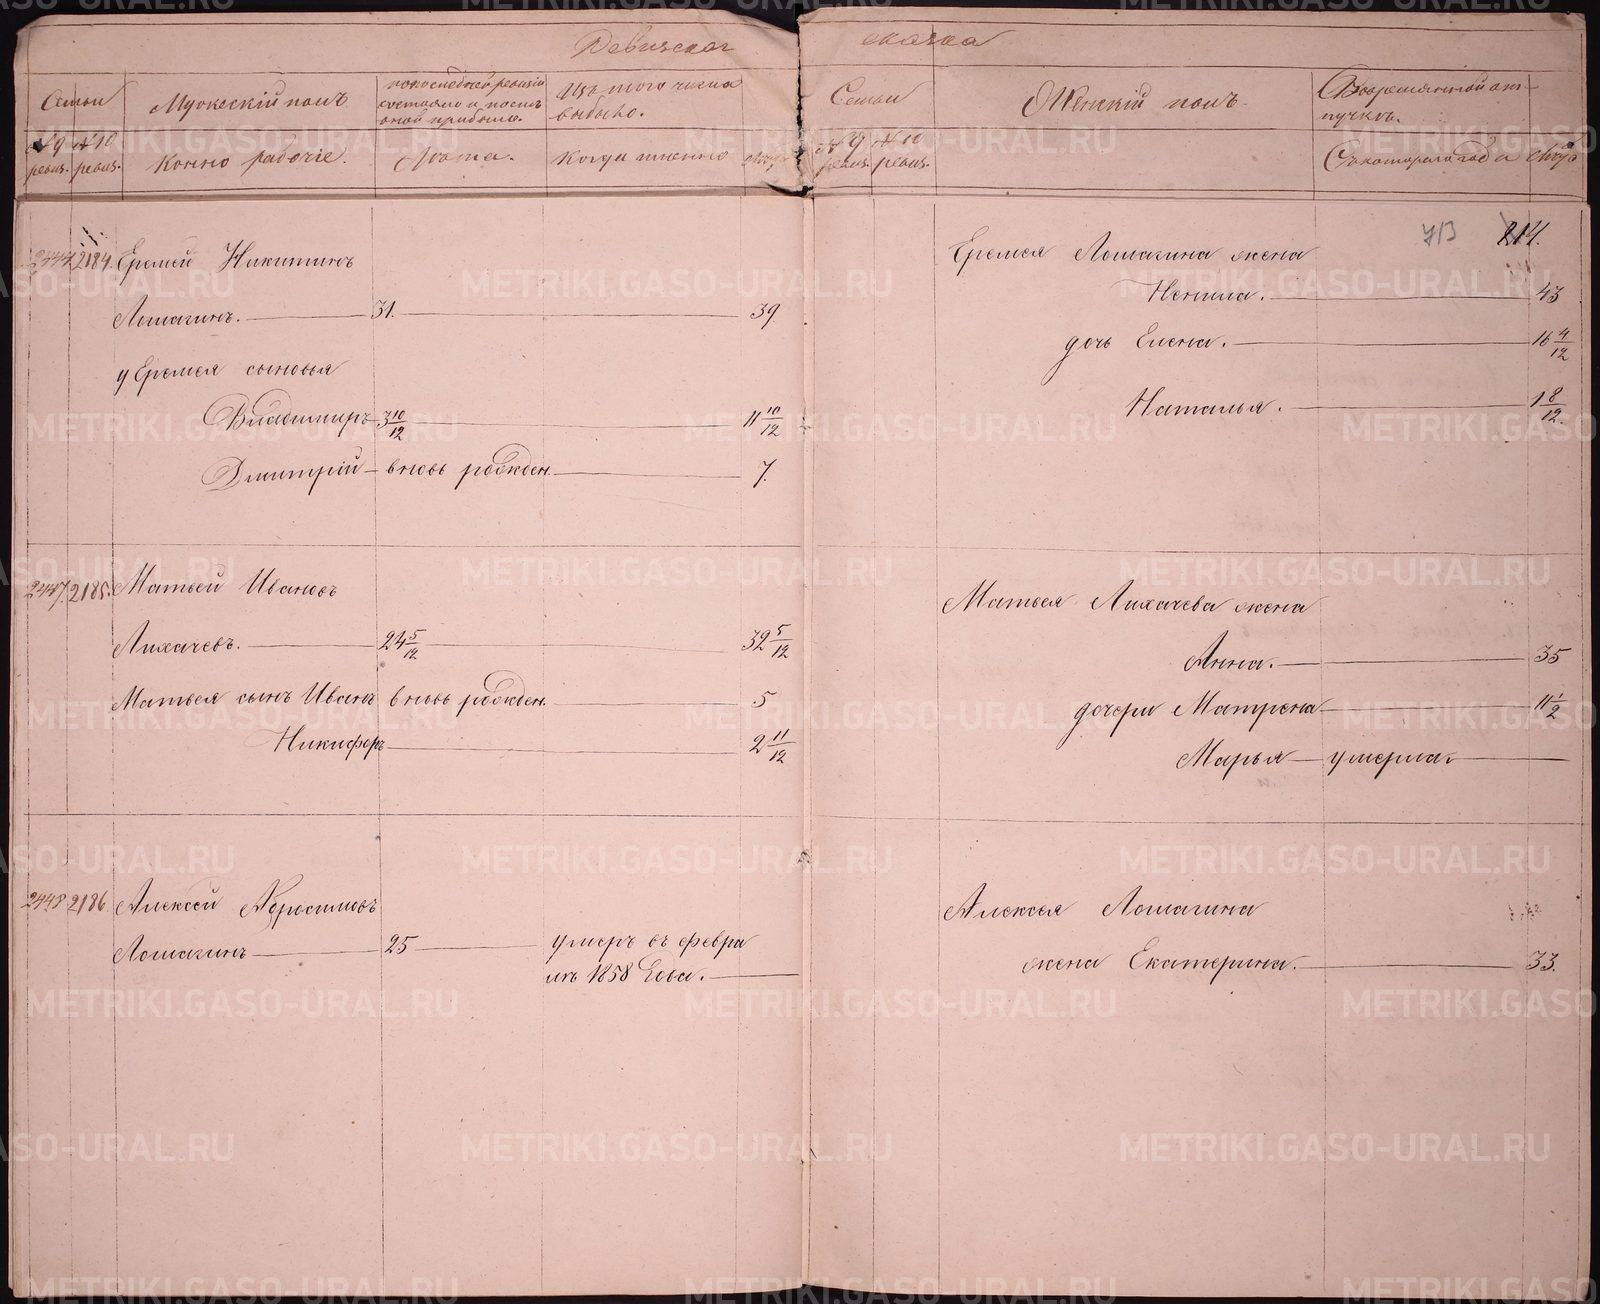 Ревизская сказка
Семьи
Мужескій полъ
по последней ревизіи состояло и после оной прибыло.
Изъ того числа выбыло.
№ 9 ревиз. № 10 ревиз.
Конно рабочіе.
Лѣта.
Когда именно
Семьи
Женскій полъ
Временной отлучкѣ.
№ 9 ревиз. № 10 ревиз.
Съ котораго года
713 214.
2184. Еремей Никитинъ
Лошагинъ. 31. 39
у Еремея сыновья
Владимиръ 3 10/12 11 10/12
Дмитрій вновь рожден. 7.
Еремея Лошагина жена
Ненила. 43
дочь Елена. 16 4/12
Наталья. 1 8/12.
2447 2185. Матвей Ивановъ
Лихачевъ. 24 5/12 32 5/12
Матвея сынъ Иванъ вновь рожден. 5
Никифоръ 2 11/12
Матвея Лихачева жена
Анна. 35
дочери Матрена 11 1/2
Марья умерла.
2448 2186. Алексей Абросимовъ
Лошагинъ 25 умеръ въ февра
лѣ 1858 года.
Алексея Лошагина
жена Екатерина. 33.
METRIKI.GASO-URAL.RU